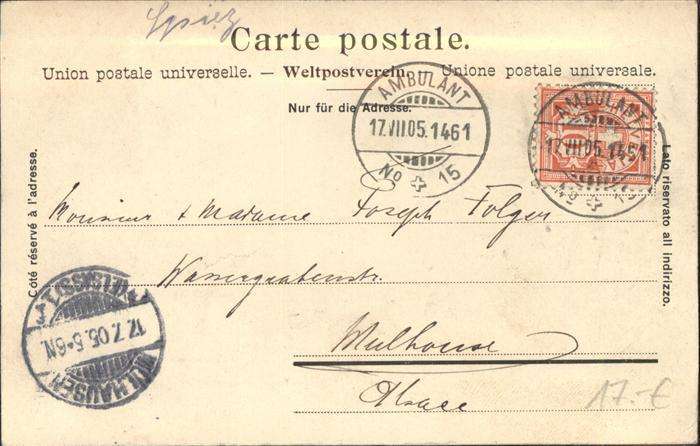 Spiez
Carte postale.
Union postale universelle. — Weltpostverein. — Unione postale universale.
Nur für die Adresse.
AMBULANT
17.VII.05.1461
No 15
AMBULANT
17.VII.05.1461
No 15
Côté réservé à l'adresse.
Lato riservato all indirizzo.
Monsieur & Madame Joseph Folger
Wassergrabenstr.
Mulhouse
Alsace
17.7.05.5-6N.
MÜLHAUSEN
17.-€